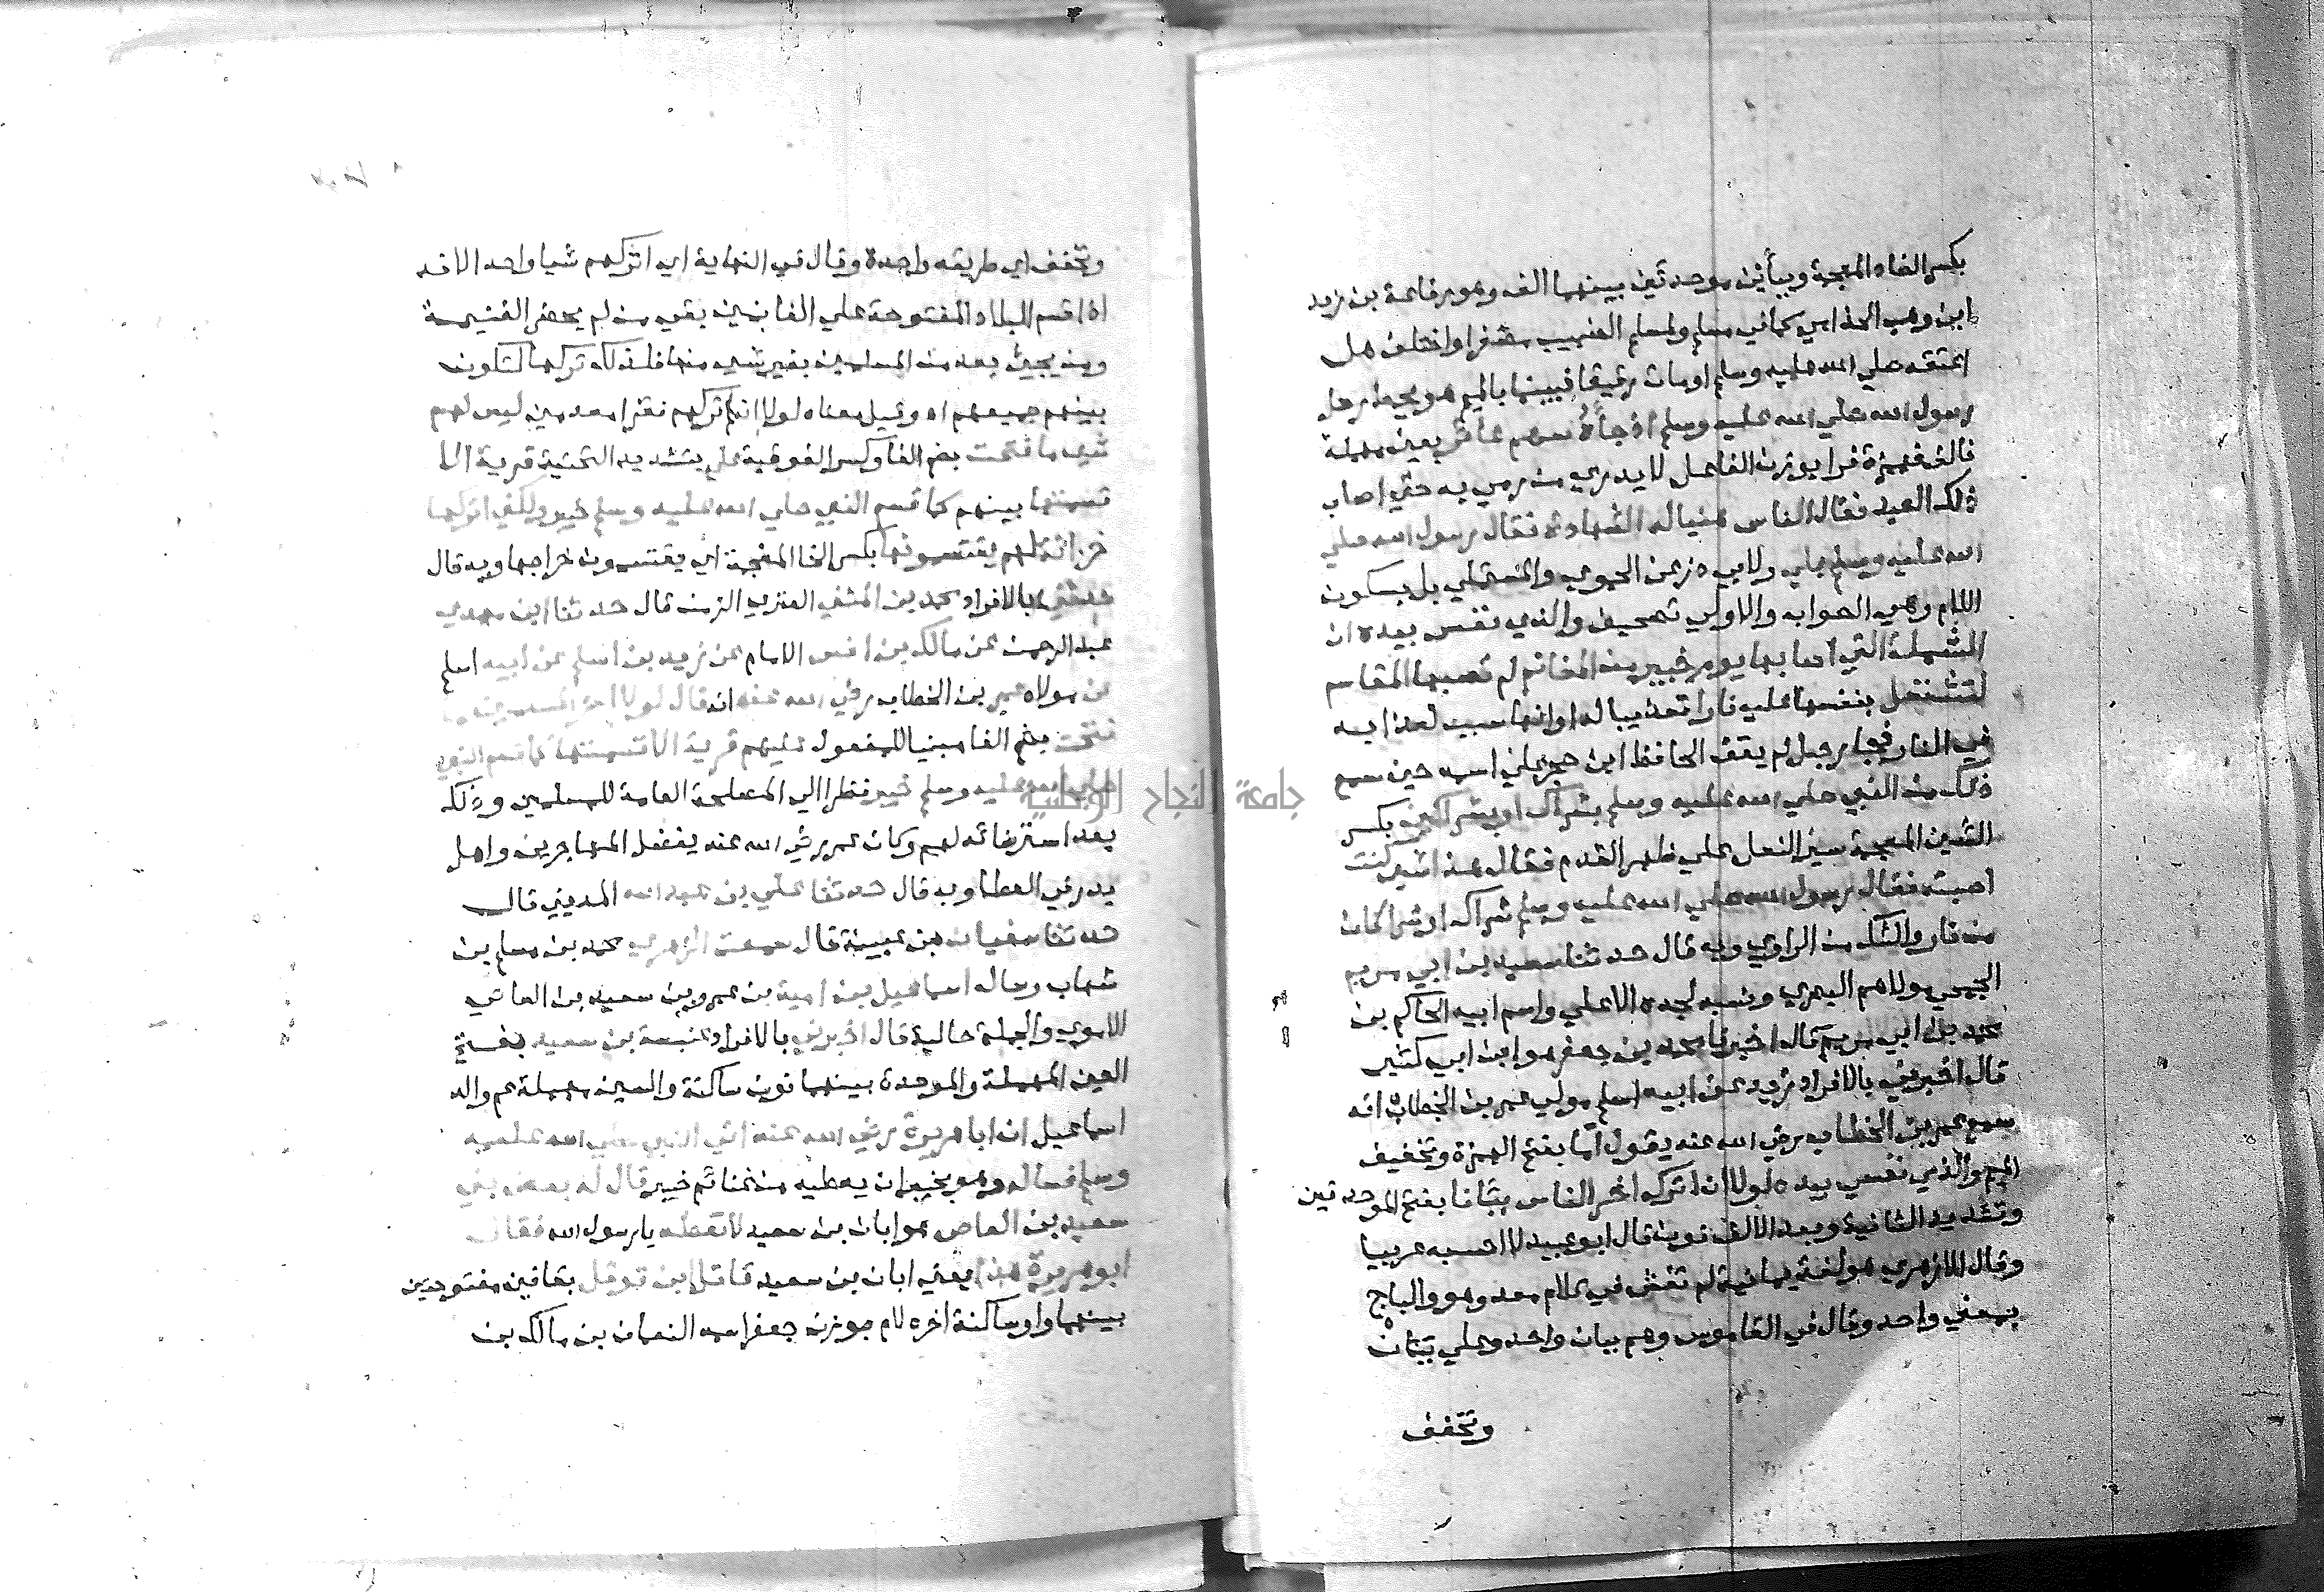 بكسر الضاد المعجمة وببأين موحدتين بينهما الف وهو رفاعة بن زيد
ابن وهب الجذامي كما في مسلم ولمسلم الضبيب مصغرا واختلف هل
اعتقه صلي الله عليه وسلم او مات رقيقا فبينما بالميم هو يحط رحل
رسول الله صلي الله عليه وسلم اذ جأه سهم عائر بعين مهملة
فالف فهمزة فرا بوزن الفاعل لا يدري من رمي به حتي اصاب
ذلك العبد فقال الناس هنيا له الشهادة فقال رسول الله صلي
الله عليه وسلم بلي ولابي ذر عن الحموي والمستملي بل بسكون
اللام وهي الصواب والاولي تصحيف والذي نفسي بيده ان
الشملة التي اصابها يوم خيبر من المغانم لم تصبها المقاسم
لتشتعل بنفسها عليه نارا تعذيبا له او انها سبب لعذابه
في النار فجا رجل لم يقف الحافظ ابن حجر علي اسمه حين سمع
ذلك من النبي صلي الله عليه وسلم بشراك او بشراكين بكسر
الشين المعجمة سير النعل علي ظهر القدم فقال هذا شي كنت
اصبته فقال رسول الله صلي الله عليه وسلم شراك او شراكان
من نار والشك من الراوي وبه قال حدثنا سعيد بن ابي مريم
الجمحي مولاهم البصري ونسبه لجده الاعلي واسم ابيه الحاكم بن
محمد بن ابي مريم قال اخبرنا محمد بن جعفر هو ابن ابي كثير
قال اخبرني بالافراد زيد عن ابيه اسلم مولي عمر بن الخطاب انه
سمع عمر بن الخطاب رضي الله عنه يقول اما بفتح الهمزة وتخفيف
الميم والذي نفسي بيده لولا ان اترك اخر الناس ببانا بفتح الموحدتين
وتشديد الثانية وبعد الالف نون قال ابو عبيد لا احسبه عربيا
وقال الازهري هو لغة يمانية لم تفش في كلام معد وهو والباج
بمعني واحد وقال في القاموس وهم ببان واحد وعلي ببان
وتخفف
وتخفف اي طريقه واحدة وقال في النهاية اي اتركهم شيا واحد الانه
اذا قسم البلاد المفتوحة علي الغانمين بقي من لم يحضر الغنيمة
ومن يجيئ بعد من المسلمين بغير شي منها فلذلك تركها لتكون
بينهم جميعهم اه وقيل معناه لولا اتركهم فقرا معدمين ليس لهم
شي ما فتحت بضم الفا وكسر الفوقية علي بتشديد التحتية قرية الا
قسمتها بينهم كما قسم النبي صلي الله عليه وسلم خيبر ولكني اتركها
خزانة لهم يقتسمونها بكسر الخا المعجمة اي يقتسمون خراجها وبه قال
حدثني بالافراد محمد بن المثني العنزي الزمن قال حدثنا ابن مهدي
عبد الرحمن عن مالك بن انس الامام عن زيد بن اسلم عن ابيه اسلم
عن مولاه عمر بن الخطاب رضي الله عنه انه قال لولا اخر المسلمين ما
فتحت بضم الفا مبنيا للمفعول عليهم قرية الا قسمتها كما قسم النبي
صلي الله عليه وسلم خيبر نظرا الي المصلحة العامة للمسلمين وذلك
بعد استرضائه لهم وكان عمر رضي الله عنه يفضل المهاجرين واهل
بدر في العطا وبه قال حدثنا علي بن عبد الله المديني قال
حدثنا سفيان بن عيينة قال سمعت الزهري محمد بن مسلم بن
شهاب وساله اسماعيل بن امية بن عمرو بن سعيد بن العاصي
الاموي والجملة حالية قال اخبرني بالافراد عنبسة بن سعيد بفتح
العين المهملة والموحدة بينهما نون ساكنة والسين مهملة عم والد
اسماعيل ان ابا هريرة رضي الله عنه اتي النبي صلي الله عليه
وسلم فساله وهو بخيبر ان يعطيه من غنائم خيبر قال له بعض بني
سعيد بن العاص هو ابان بن سعيد لا تعطه يا رسول الله فقال
ابو هريرة هذا يعني ابان بن سعيد قاتل ابن قوقل بقافين مفتوحتين
بينهما واو ساكنة اخره لام جوزن جعفر اسمه النعمان بن مالك بن
جامعة النجاح الوطنية